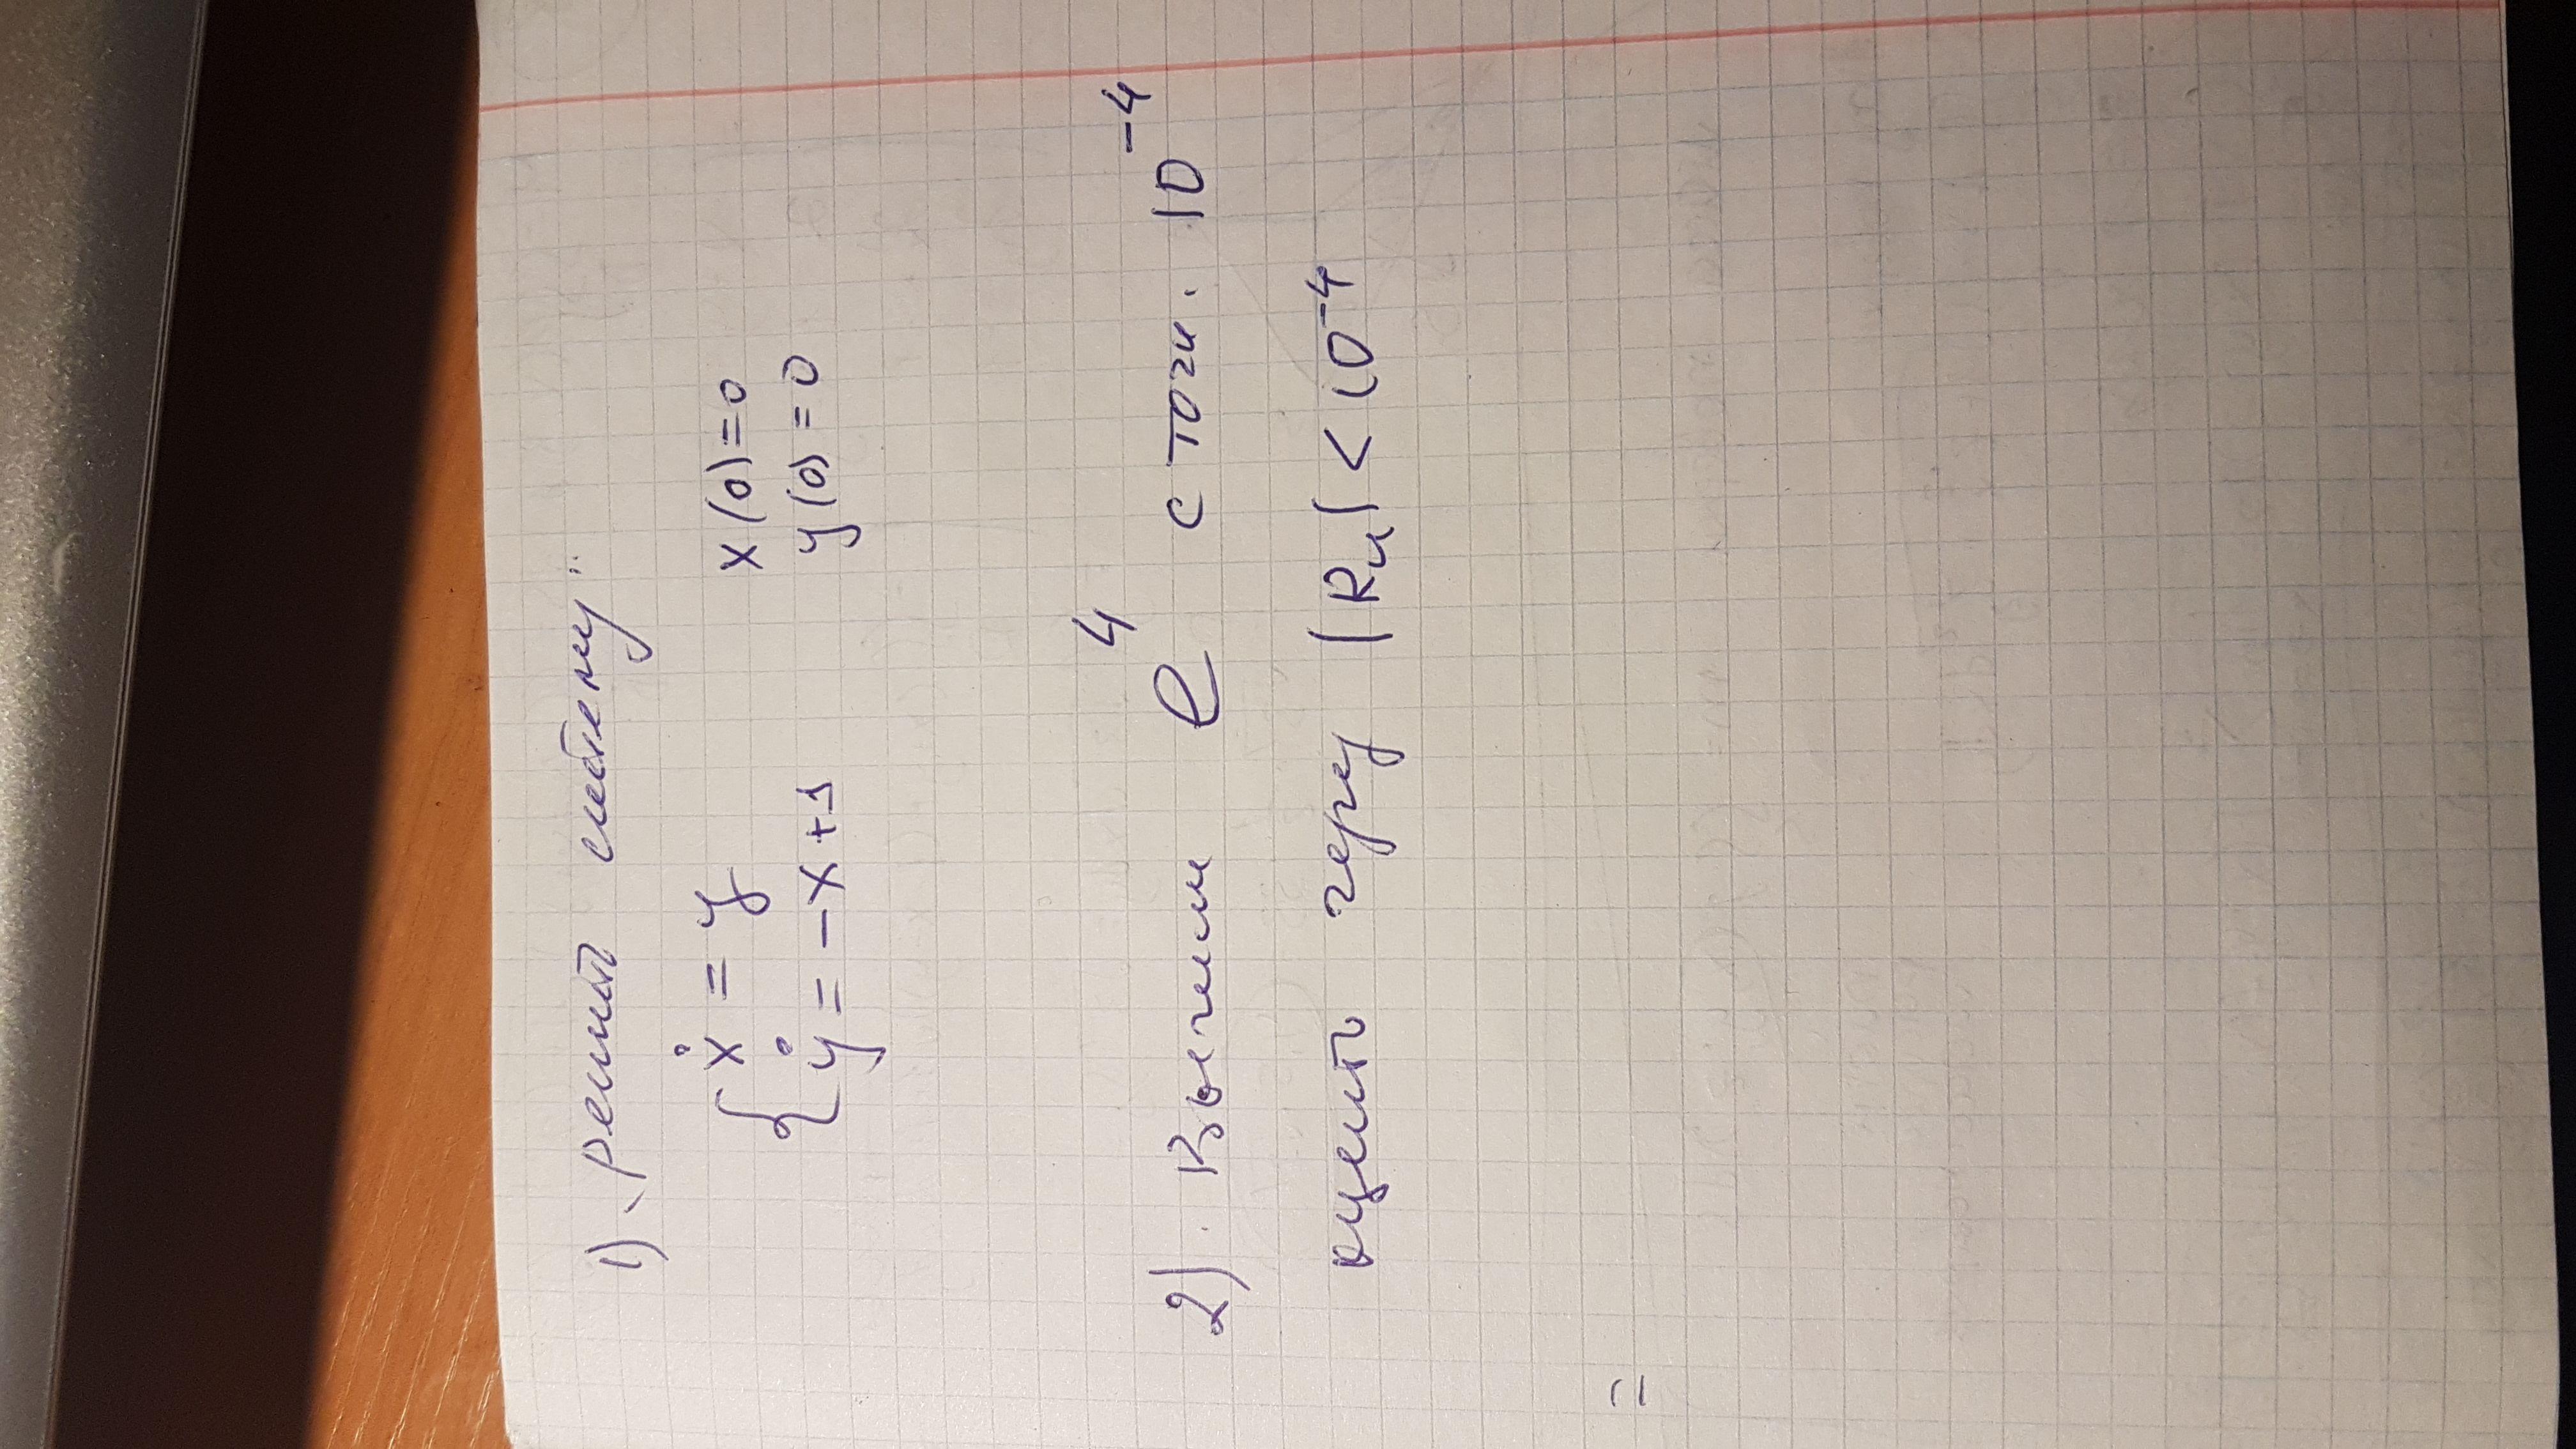 1) решить систему:
{ ẋ = y x(0)=0
ẏ = -x+1 y(0)=0
2). Вычислим e⁴ с точн. 10⁻⁴
оценить через |Rn| < 10⁻⁴
=